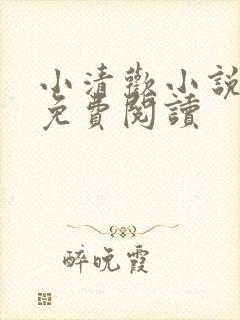 小清歡小說
免費閱讀
醉晚霞